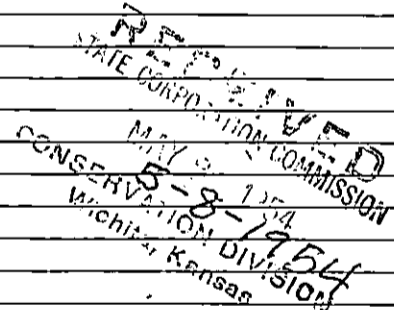 RECEIVED
STATE CORPORATION COMMISSION
MAY 1954
5-8-1954
CONSERVATION DIVISION
Wichita, Kansas